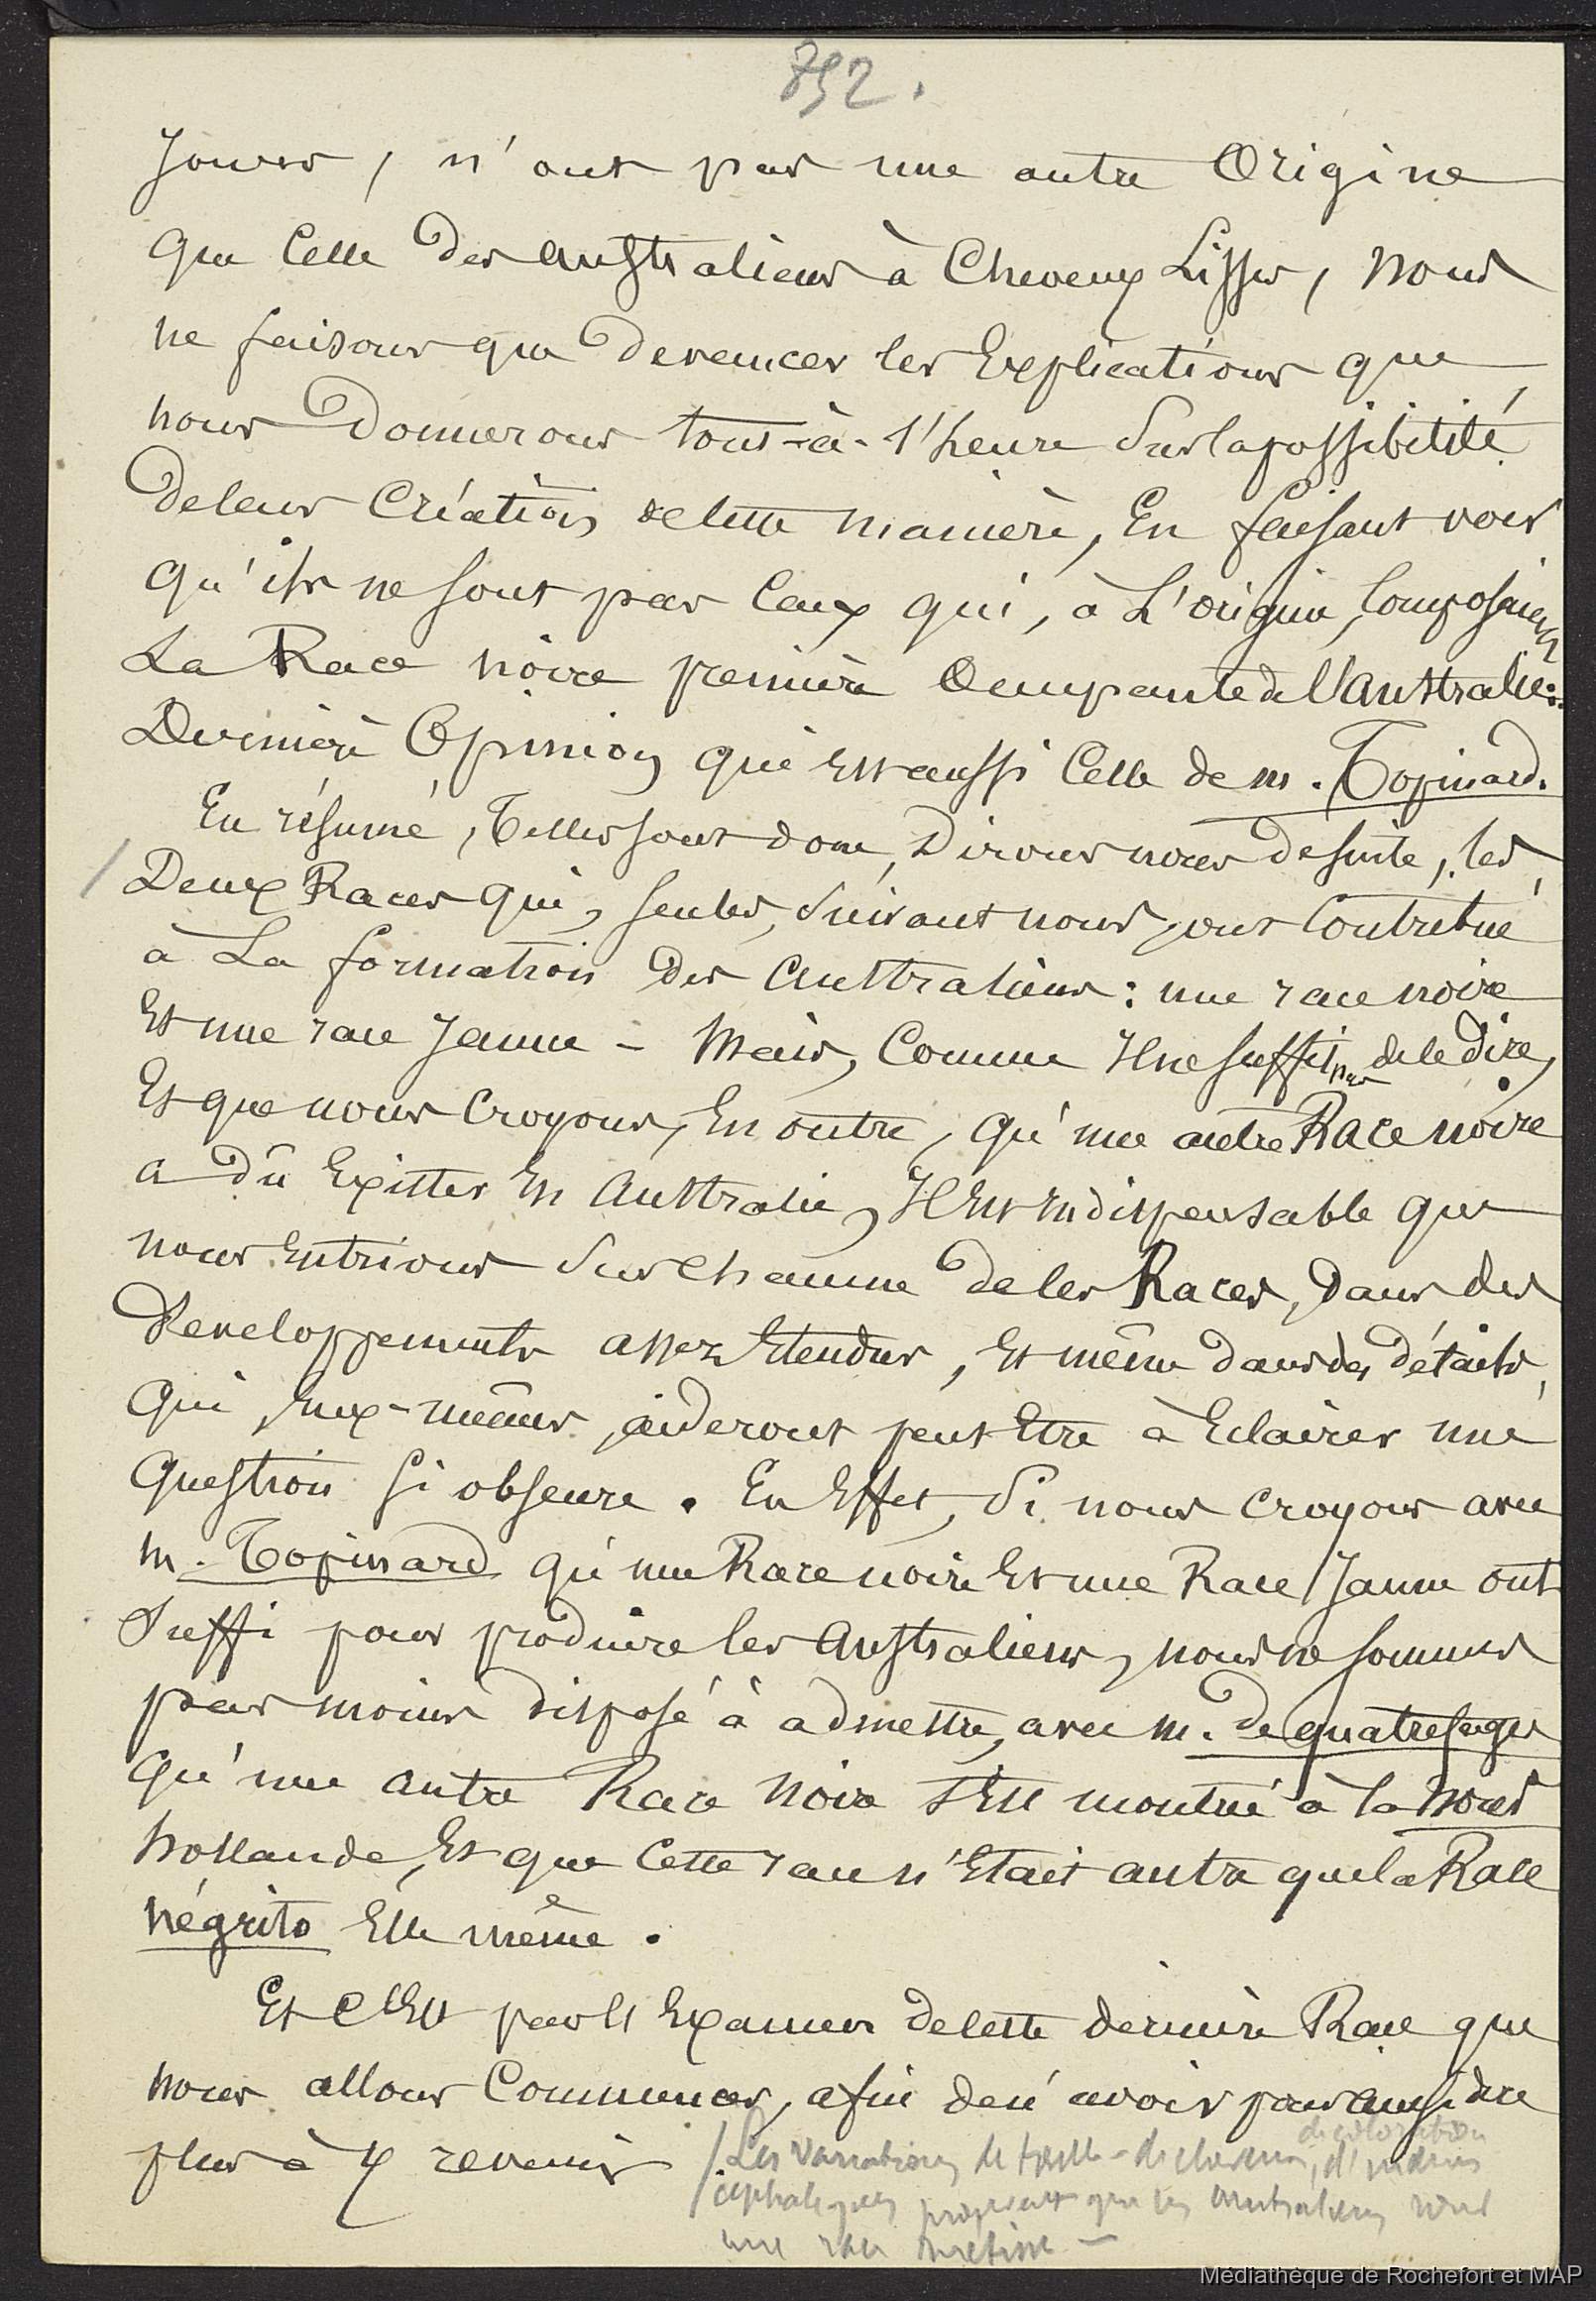 792.
Jours, n'ont pas une autre Origine
que Celle des Australiens à Cheveux Lisses, nous
ne faisons que devancer les Explications que
nous Donnerons tout-à-l'heure Sur la possibilité
de leur Création de cette manière, En faisant voir
qu'ils ne sont pas Ceux qui, à L'origine, Composaient
La Race noire première Occupante de l'Australie:
Dernière Opinion qui est aussi Celle de m. Topinard.
En résumé, Telles sont donc, Dirons nous de suite, les
Deux Races qui, seules, Suivant nous, ont Contribué
à La formation des Australiens : une race noire
Et une race Jaune - Mais, Comme Il ne suffit pas de le Dire,
Et que nous Croyons, En outre, qu'une autre Race noire
a dû Exister En Australie, Il Est indispensable que
nous Entrions Sur Chacune de ces Races, Dans des
Développements assez Etendus, Et même dans des détails,
qui, Eux-mêmes, aideront peut Etre à Eclairer une
question si obscure. En Effet, Si nous croyons avec
m. Topinard qu'une Race noire Et une Race Jaune ont
Suffi pour produire les Australiens, nous ne sommes
pas moins disposé à admettre, avec m. de quatrefages
qu'une autre Race noire s'Est montrée à la Nouv
hollande, Et que Cette race n'Etait autre que la Race
négrito Elle même.
Et C'Est par l'Examen de cette dernière Race que
nous allons Commencer, afin de n'avoir pour ainsi dire
plus à y revenir
de coloration
/ Les variations de taille - de cheveux, d'indices
céphaliques prouvent que les Australiens sont
une race métisse -
Médiathèque de Rochefort et MAP